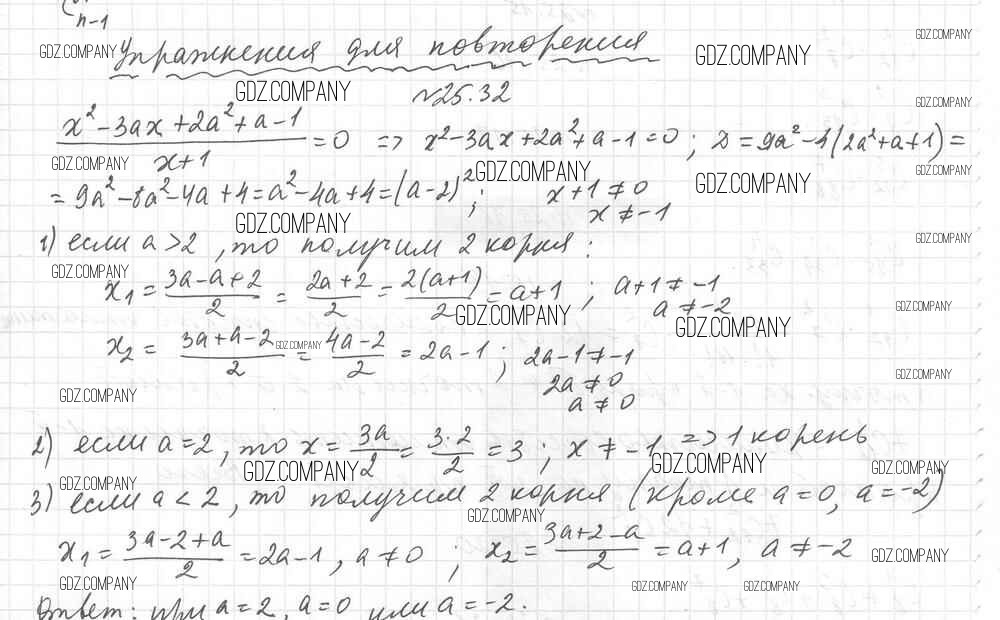 n-1
Упражнения для повторения
GDZ.COMPANY GDZ.COMPANY GDZ.COMPANY
GDZ.COMPANY №25.32 GDZ.COMPANY
(x²-3ax+2a²+a-1)/(x+1) = 0 => x²-3ax+2a²+a-1=0; D=9a²-4(2a²+a+1)=
GDZ.COMPANY GDZ.COMPANY GDZ.COMPANY GDZ.COMPANY
= 9a²-8a²-4a+4=a²-4a+4=(a-2)²; x+1≠0
x≠-1
GDZ.COMPANY GDZ.COMPANY
1) если a>2, то получим 2 корня:
GDZ.COMPANY
x₁ = (3a-a+2)/2 = (2a+2)/2 = 2(a+1)/2 = a+1; a+1≠-1
a≠-2
GDZ.COMPANY GDZ.COMPANY GDZ.COMPANY
x₂ = (3a+a-2)/2 = (4a-2)/2 = 2a-1; 2a-1≠-1
GDZ.COMPANY GDZ.COMPANY
2a≠0
a≠0
GDZ.COMPANY
2) если a=2, то x = 3a/2 = 3·2/2 = 3; x≠-1 => 1 корень
GDZ.COMPANY GDZ.COMPANY GDZ.COMPANY GDZ.COMPANY
3) если a<2, то получим 2 корня (кроме a=0, a=-2)
GDZ.COMPANY
x₁ = (3a-2+a)/2 = 2a-1, a≠0; x₂ = (3a+2-a)/2 = a+1, a≠-2
GDZ.COMPANY GDZ.COMPANY GDZ.COMPANY GDZ.COMPANY
Ответ: при a=2, a=0 или a=-2.